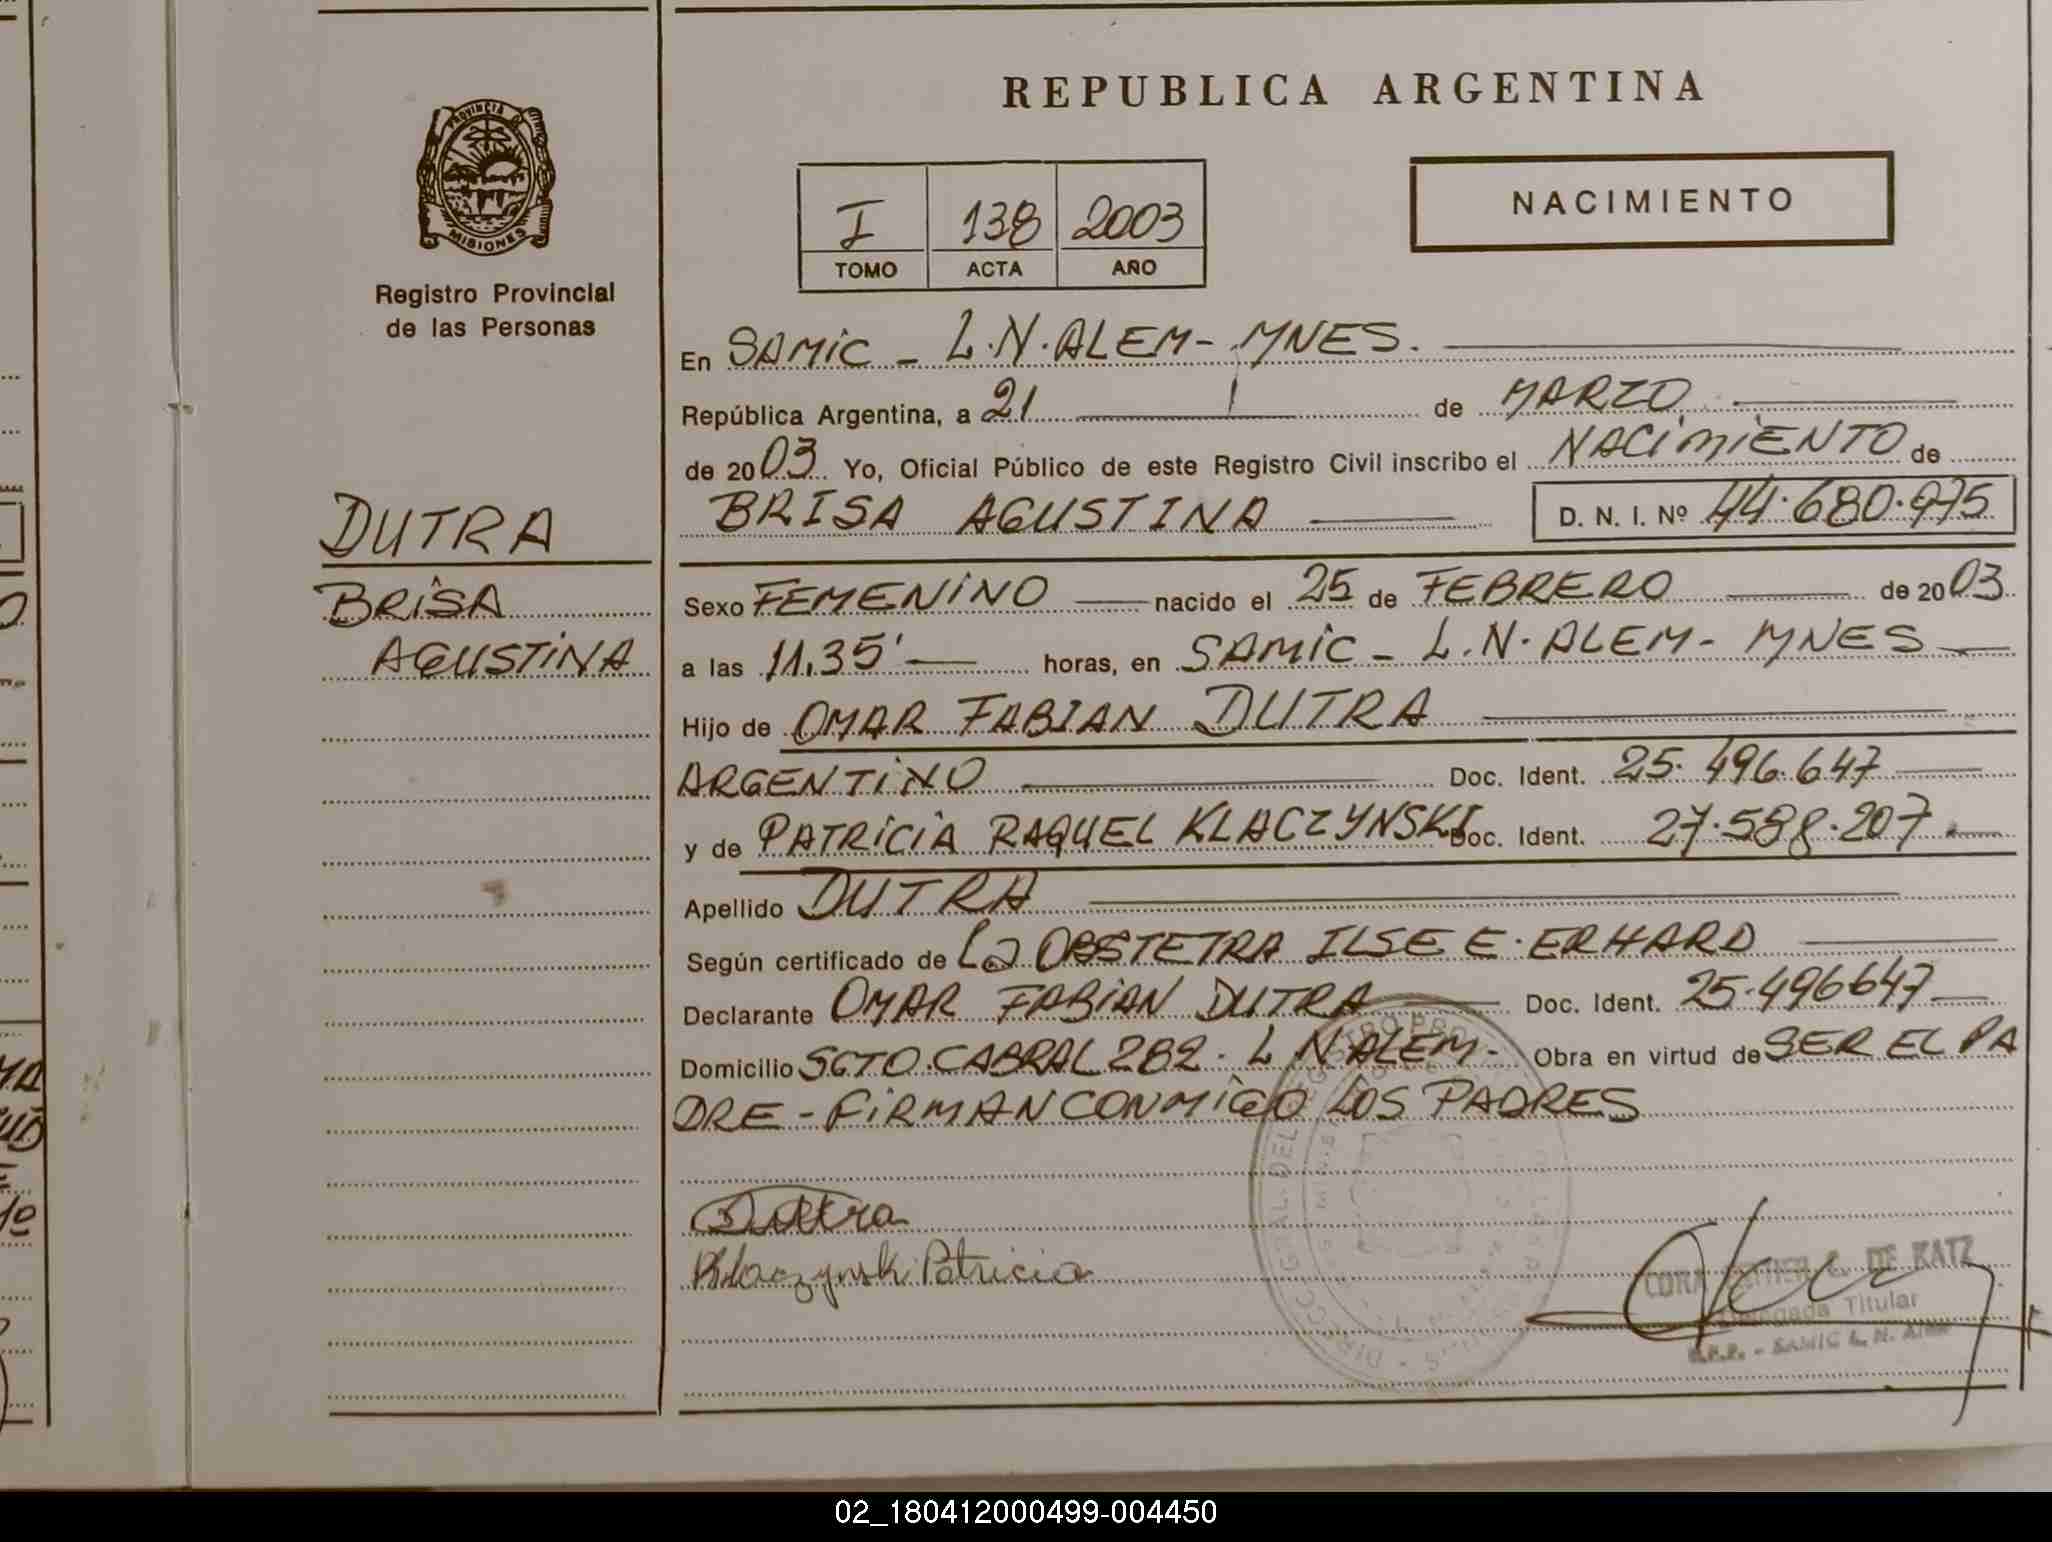 REPUBLICA ARGENTINA
PROVINCIA D
MISIONES
Registro Provincial
de las Personas
I 138 2003
TOMO ACTA AÑO
NACIMIENTO
En SAMIC - L.N.ALEM- MNES.
República Argentina, a 21 de MARZO
de 2003 Yo, Oficial Público de este Registro Civil inscribo el NACIMIENTO de
BRISA AGUSTINA D. N. I. Nº 44.680.975
DUTRA
BRISA
AGUSTINA
Sexo FEMENINO nacido el 25 de FEBRERO de 2003
a las 11.35' horas, en SAMIC - L.N.ALEM- MNES
Hijo de OMAR FABIAN DUTRA
ARGENTINO Doc. Ident. 25.496.647
y de PATRICIA RAQUEL KLACZYNSKI Doc. Ident. 27.588.207.
Apellido DUTRA
Según certificado de La OBSTETRA ILSE E. ERHARD
Declarante OMAR FABIAN DUTRA Doc. Ident. 25.496647
Domicilio SGTO.CABRAL 282. L N ALEM- Obra en virtud de SER EL PA
DRE - FIRMAN CONMIGO LOS PADRES
Dutra
Klaczynski Patricia
DE KATZ
Delegada Titular
SAMIC L. N. Alem
02_180412000499-004450